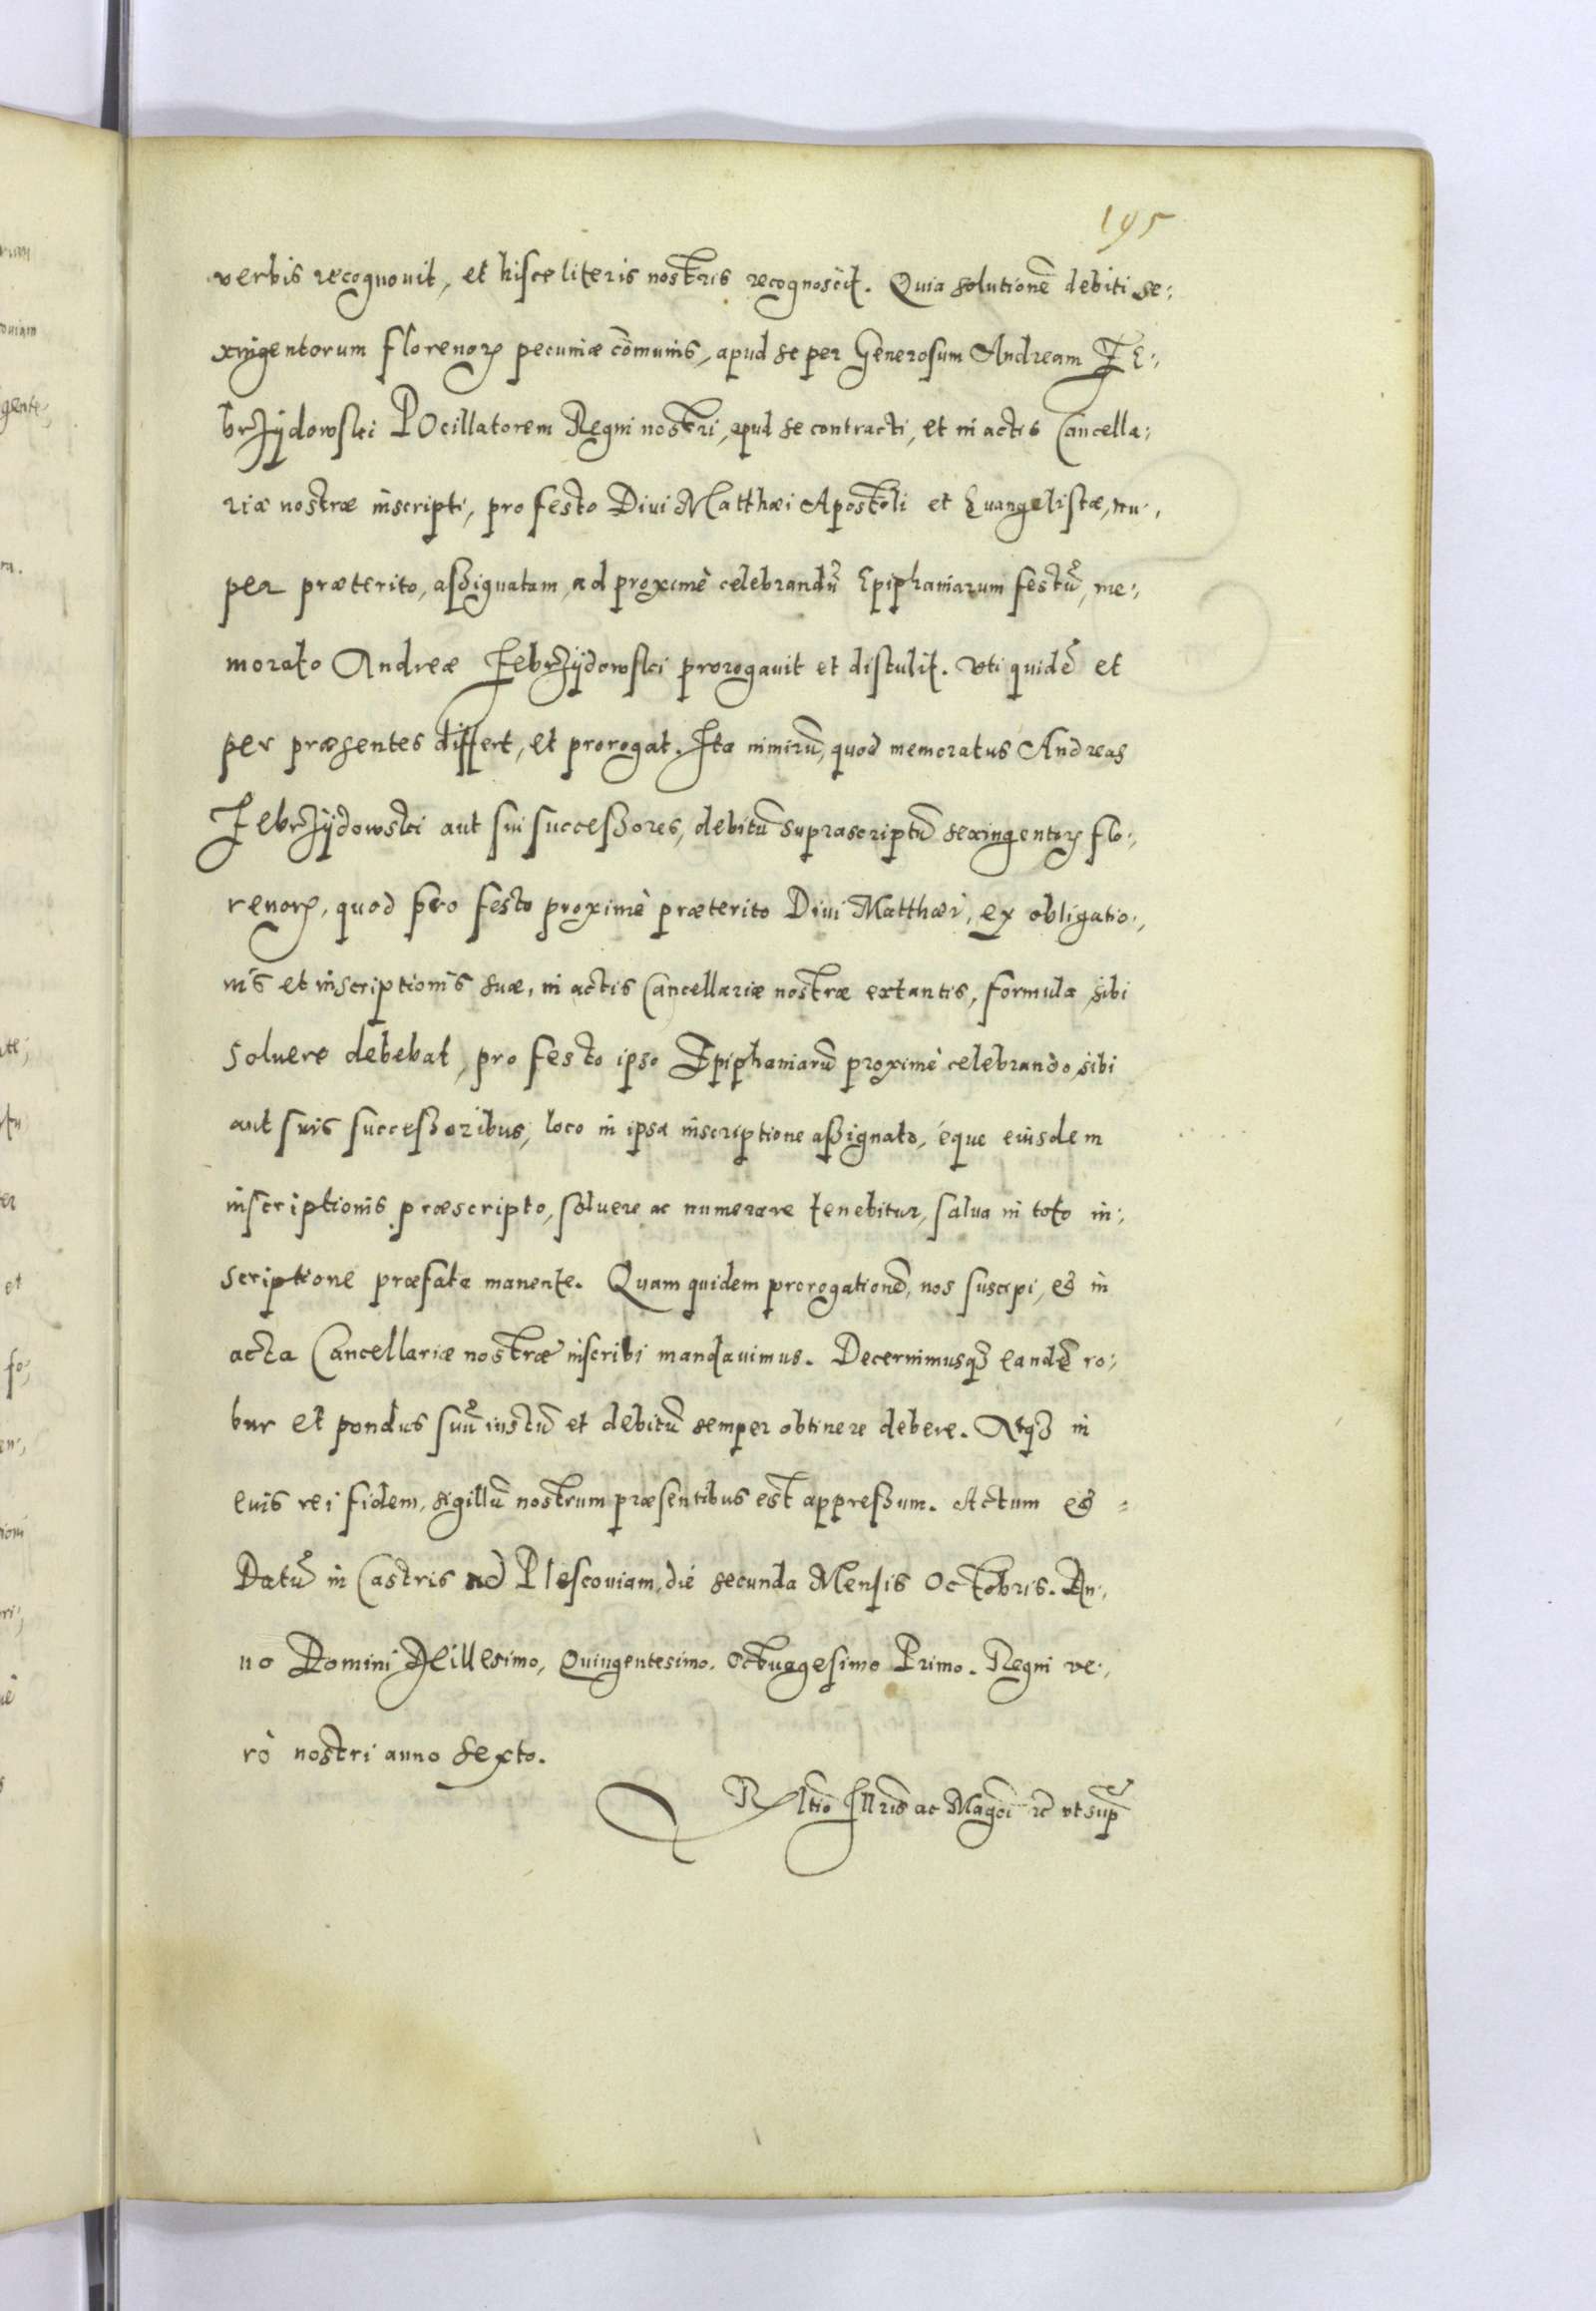 195
verbis recognouit, et hisce literis nostris recognoscit. Quia solutionẽ debiti se:
xingentorum florenorꝫ pecuniæ cõmunis, apud se per Generosum Andream Ze:
brzÿdowski POcillatorem Regni nostri, apud se contracti, et in actis Cancella:
riæ nostræ inscripti, pro festo Diui Matthæi Apostoli et Euangelistæ, nu:
per præterito, aßignatam, ad proximè celebrandũ Epiphaniarum festũ, me:
morato Andreæ Zebrzÿdowski prorogauit et distulit. Vti quidẽ et
per præsentes differt, et prorogat. Ita nimirũ, quod memoratus Andreas
Zebrzÿdowski aut sui succeßores, debitũ suprascriptũ sexingentorꝫ flo:
renorꝫ, quod pro festo proximè præterito Diui Matthæi, ex obligatio:
nis et inscriptionis suæ, in actis Cancellariæ nostræ extantis, formula sibi
soluere debebat, pro festo ipso Epiphaniarũ proximè celebrando, sibi
aut suis succeßoribus, loco in ipsa inscriptione aßignato, èque eiusdem
inscriptionis præscripto, soluere ac numerare tenebitur, salua in toto in:
scriptione præfata manente. Quam quidem prorogationẽ, nos suscipi, et in
acta Cancellariæ nostræ inscribi mandauimus. Decernimusqꝫ eandẽ ro:
bur et pondus suũ iustũ et debitũ semper obtinere debere. Atqꝫ in
euis rei fidem, sigillũ nostrum præsentibus est appreßum. Actum et
Datũ in Castris ad Plescouiam, die secunda Mensis Octobris. An:
no Domini Millesimo, Quingentesimo, Octuagesimo Primo. Regni ve:
rò nostri anno sexto.
Rltio Illris ac Magci rc vt sup